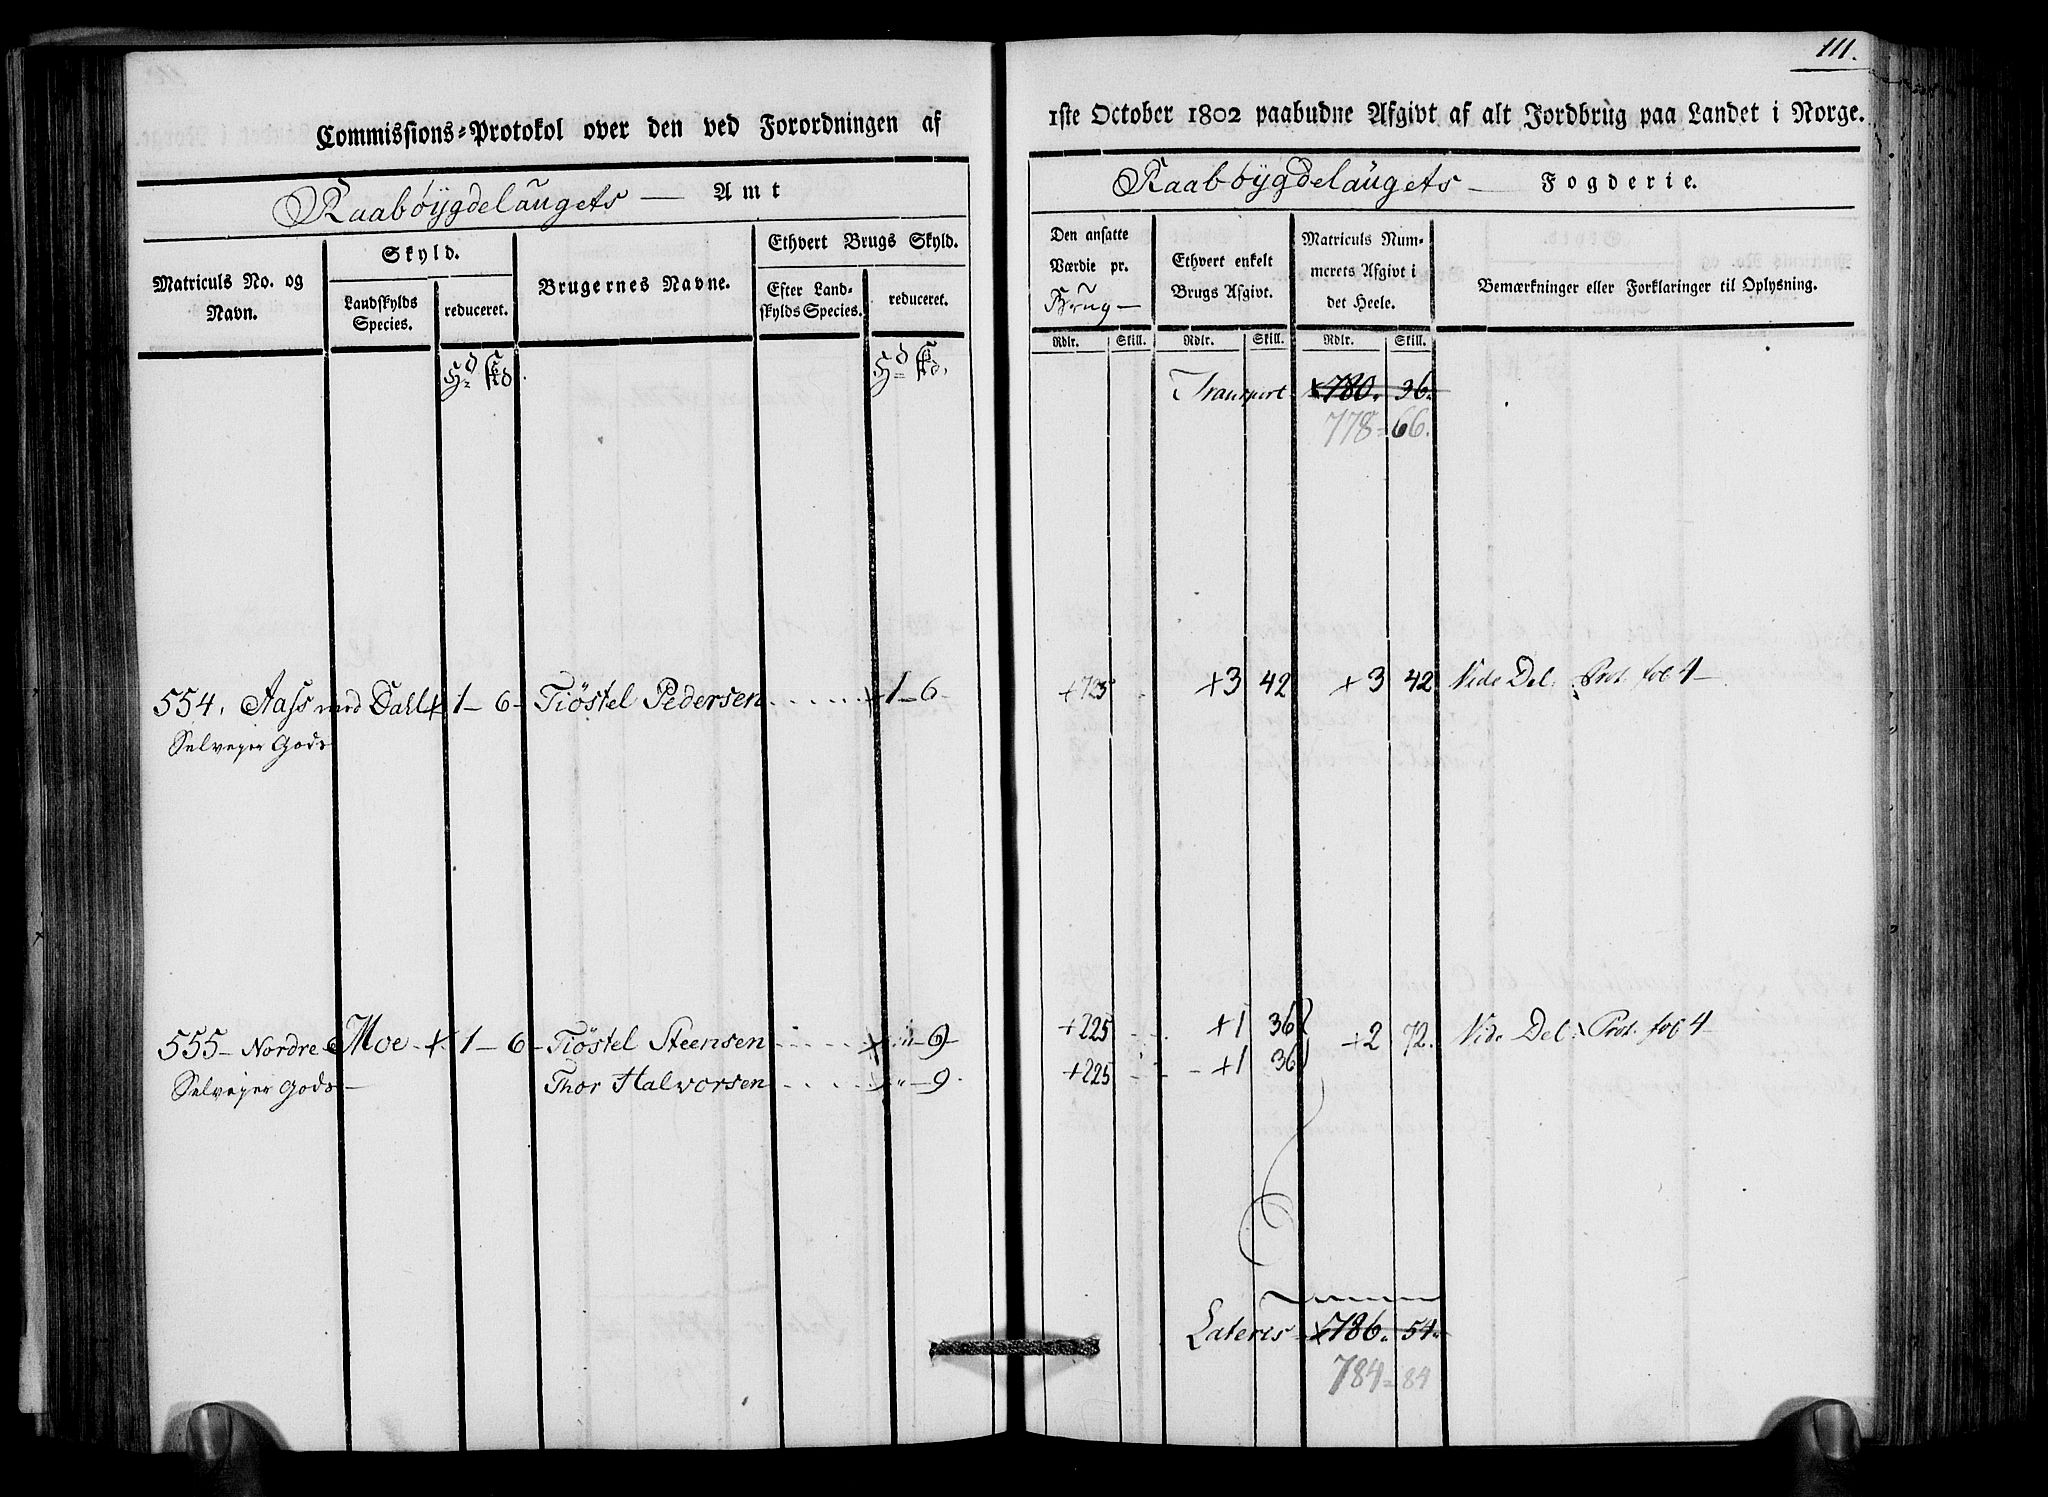 111.
Commissions-Protokol over den ved Forordningen af
1ste October 1802 paabudne Afgivt af alt Jordbrug paa Landet i Norge.
Raabøygdelaugets — Amt
Raabøygdelaugets — Fogderie.
Matriculs No. og Navn.
Skyld.
Landskylds Species.
reduceret.
Brugernes Navne.
Ethvert Brugs Skyld.
Efter Landskylds Species.
reduceret.
Den ansatte Værdie pr. Brug —
Ethvert enkelt Brugs Afgivt.
Matriculs Nummerets Afgivt i det Heele.
Bemærkninger eller Forklaringer til Oplysning.
Rdlr. Skill. Rdlr. Skill. Rdlr. Skill.
Hd Skd Hd Skd.
Transport +780. 36.
778 = 66.
554. Aass med Dahl + 1 — 6 — Tiøstel Pedersen + 1 — 6 +725 +3 42 +3 42 Vide Del. Prot. fol 4 —
Selveyer Gods
555 — Nordre Moe + 1 — 6 — Tiøstel Steensen + " — 9 +225 +1 36 +2 72. Vide Del. Prot. fol 4 —
Selveyer Gods — Thor Halvorsen + " — 9. +225 +1 36
Lateris +786. 54.
784 = 84